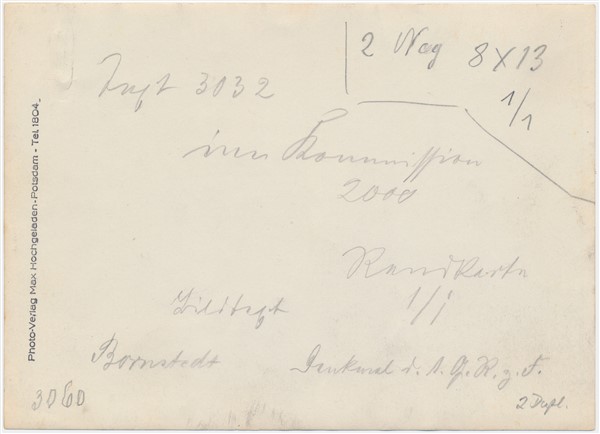 2 Neg 8x13
1/1
3032
in Kommission
2000
Randkarte
1/1
Bildtext
Bornstedt
Denkmal d. 1. G. R. z. F.
3060
2 Dupl.
Photo-Verlag Max Hochgeladen-Potsdam - Tel. 1804